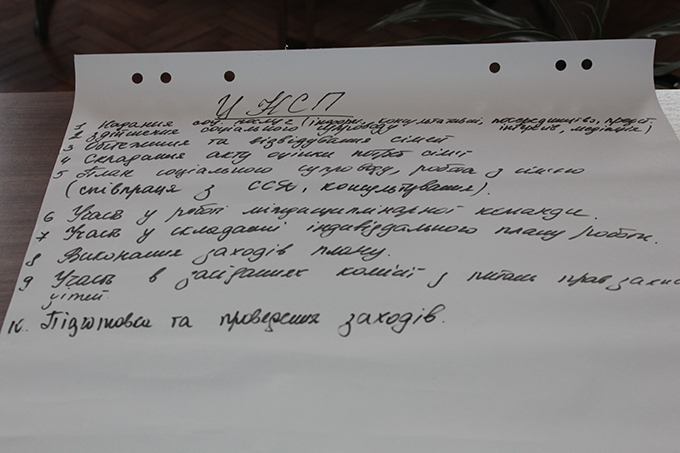 ЦНСП
1 Надання соц. послуг (інформ., консультації, посередництво, предст.
2 Здійснення соціального супроводу інтереів, медіація)
3 Обстеження та відвідування сімей
4 Складання акту оцінки потреб сім'ї
5 План соціального супроводу, робота з сім'єю
(співпраця з ССД, консультування).
6 Участь у роботі міждисциплінарної команди.
7 Участь у складанні індивідуального плану роботи.
8 Виконання заходів плану.
9 Участь в засіданнях комісії з питань прав захис
дітей.
10. Підготовка та проведення заходів.